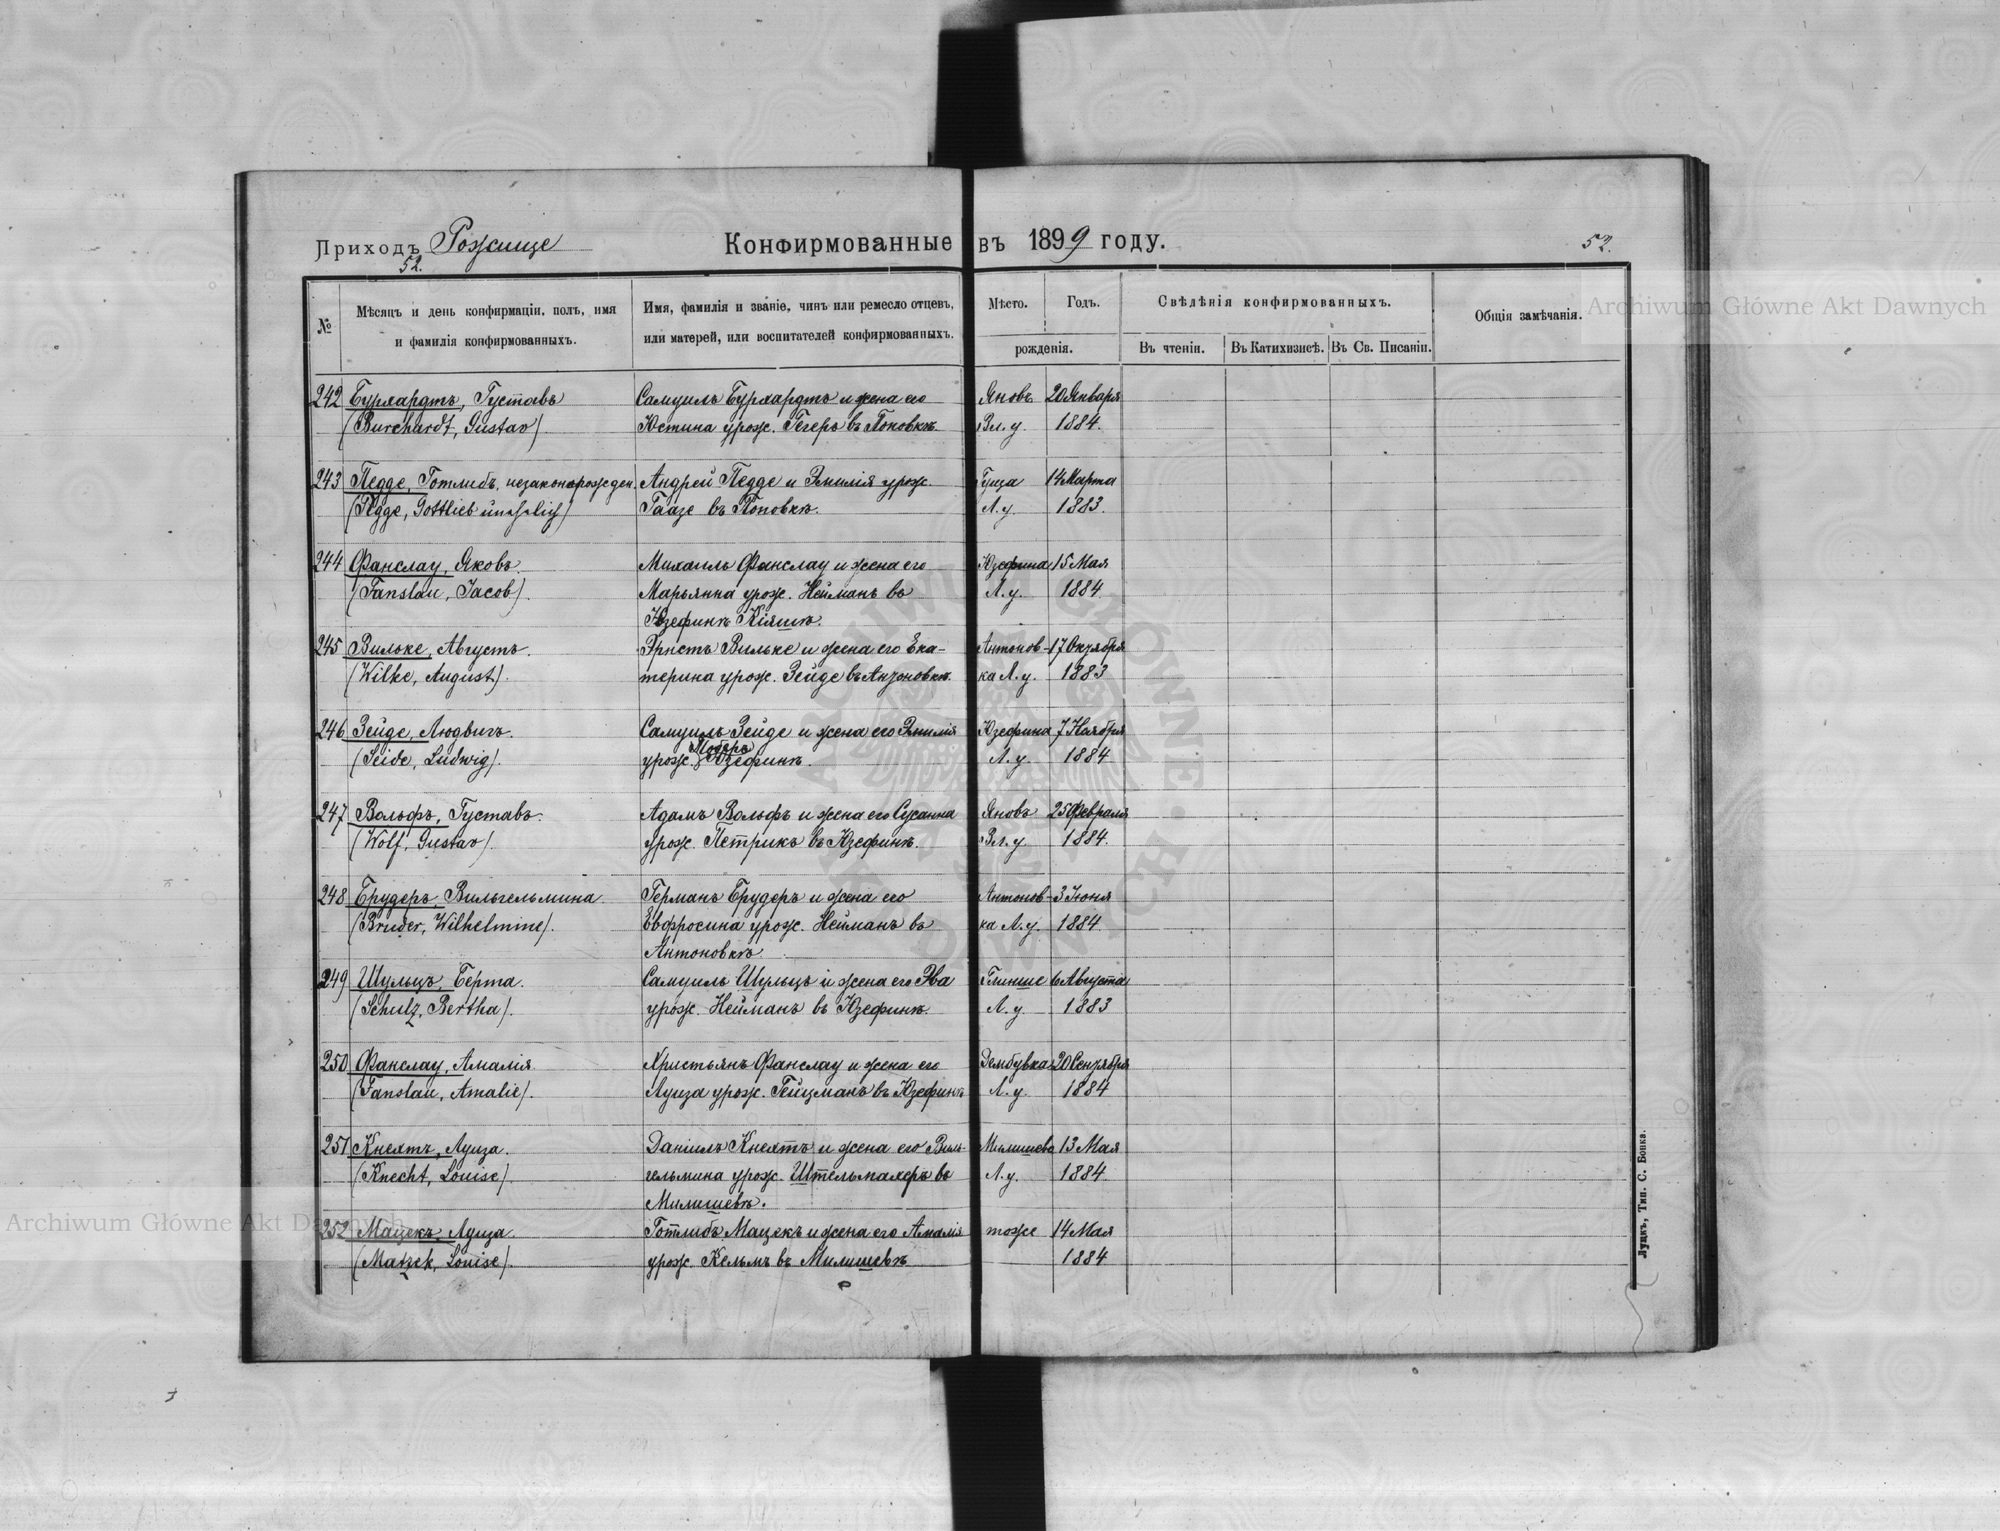 Приходъ Рожище
52.
Конфирмованные въ 1899 году.
52.
№
Мѣсяцъ и день конфирмаціи, полъ, имя
и фамилія конфирмованныхъ.
Имя, фамилія и званіе, чинъ или ремесло отцевъ,
или матерей, или воспитателей конфирмованныхъ.
Мѣсто.
Годъ.
рожденія.
Свѣдѣнія конфирмованныхъ.
Въ чтеніи.
Въ Катихизисѣ.
Въ Св. Писаніи.
Общія замѣчанія.
242 Бурхардтъ, Густавъ Самуилъ Бурхардтъ и жена его Яновъ 20 Января
(Burchardt, Gustav) Юстина урож. Гегеръ въ Поповкѣ. Вл. у. 1884.
243 Педде, Готлибъ, незаконорожден. Андрей Педде и Эмилія урож. Гуща 14 Марта
(Pedde, Gottlieb unehelich) Гаазе въ Поповкѣ. Л. у. 1883.
244 Фанслау, Яковъ. Михаилъ Фанслау и жена его Юзефина 15 Мая
(Fanslau, Jacob). Марьянна урож. Нейманъ въ Л. у. 1884
Юзефинѣ Кіяшѣ.
245 Вильке, Августъ. Эрнстъ Вильке и жена его Ека- Антонов- 17 Октября
(Wilke, August). терина урож. Зейде въ Антоновкѣ. ка Л. у. 1883
246 Зейде, Людвигъ. Самуилъ Зейде и жена его Эмилія Юзефина 7 Ноября
(Seide, Ludwig). урож. Юзефинѣ. Л. у. 1884
247 Вольфъ, Густавъ. Адамъ Вольфъ и жена его Сусанна Яновъ 25 Февраля
(Wolf, Gustav). урож. Петрикъ въ Юзефинѣ. Вл. у. 1884.
248 Брудеръ, Вильгельмина. Германъ Брудеръ и жена его Антонов- 3 Іюня
(Bruder, Wilhelmine). Евфросина урож. Нейманъ въ ка Л. у. 1884
Антоновкѣ.
249 Шульцъ, Берта. Самуилъ Шульцъ и жена его Эва Глинше 6 Августа
(Schulz, Bertha). урож. Нейманъ въ Юзефинѣ. Л. у. 1883
250 Фанслау, Амалія. Христьянъ Фанслау и жена его Дембувка 20 Сентября
(Fanslau, Amalie). Луиза урож. Гейцманъ въ Юзефинѣ Л. у. 1884
251 Кнехтъ, Луиза. Даніилъ Кнехтъ и жена его Виль- Милишево 13 Мая
(Knecht, Louise). гельмина урож. Штельмахеръ въ Л. у. 1884
Милишевѣ.
252 Мацекъ, Луиза. Готлибъ Мацекъ и жена его Амалія тоже 14 Мая
(Matzek, Louise). урож. Кельмъ въ Милишевѣ 1884
Луцкъ, Тип. С. Бонка.
Archiwum Główne Akt Dawnych
Archiwum Główne Akt Dawnych